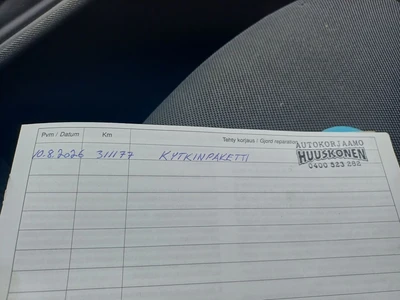 Pvm / Datum Km Tehty korjaus / Gjord reparation
AUTOKORJAAMO
10.8.2026 311177 KYTKINPAKETTI HUUSKONEN
0400 523 282